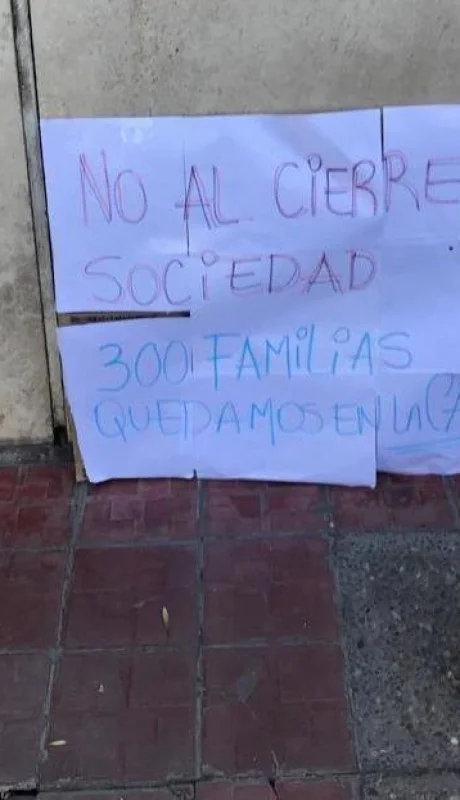 NO AL CIERRE
SOCIEDAD
300 FAMILIAS
QUEDAMOS EN LA